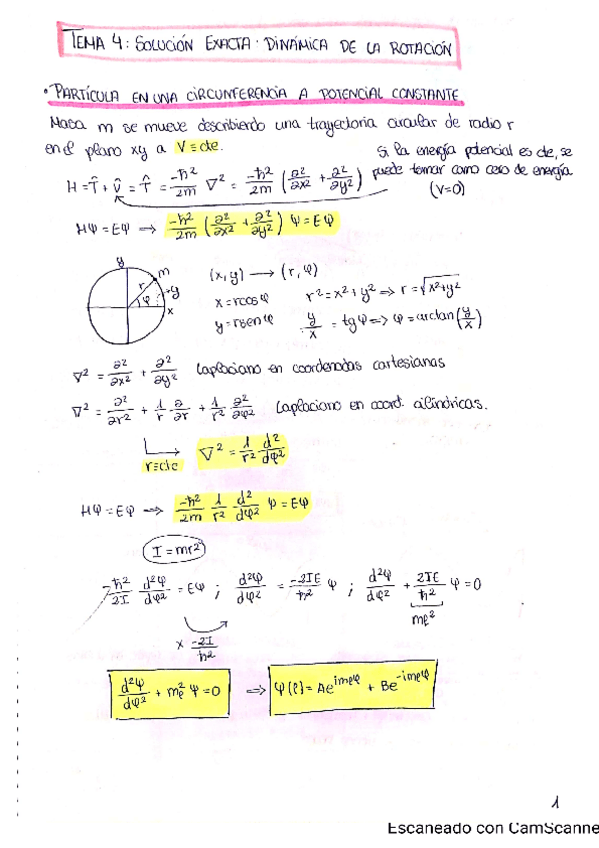 TEMA 4: SOLUCIÓN EXACTA: DINÁMICA DE LA ROTACIÓN
• PARTÍCULA EN UNA CIRCUNFERENCIA A POTENCIAL CONSTANTE
Masa m se mueve describiendo una trayectoria circular de radio r
en el plano xy a V = cte.
Si la energía potencial es cte, se
puede tomar como cero de energía
(V=0)
H = T̂ + V̂ = T̂ = -ħ²/2m ∇² = -ħ²/2m (∂²/∂x² + ∂²/∂y²)
HΨ = EΨ → -ħ²/2m (∂²/∂x² + ∂²/∂y²) Ψ = EΨ
y m r φ y x
(x, y) → (r, φ)
x = r cos φ r² = x² + y² ⇒ r = √x²+y²
y = r sen φ y/x = tg φ ⇒ φ = arctan(y/x)
∇² = ∂²/∂x² + ∂²/∂y² Laplaciano en coordenadas cartesianas
∇² = ∂²/∂r² + 1/r ∂/∂r + 1/r² ∂²/∂φ² Laplaciano en coord. cilíndricas.
r=cte ∇² = 1/r² d²/dφ²
HΨ = EΨ → -ħ²/2m 1/r² d²/dφ² Ψ = EΨ
I = mr²
-ħ²/2I d²Ψ/dφ² = EΨ ; d²Ψ/dφ² = -2IE/ħ² Ψ ; d²Ψ/dφ² + 2IE/ħ² Ψ = 0
mℓ²
x -2I/ħ²
d²Ψ/dφ² + mℓ² Ψ = 0 ⇒ Ψ(φ) = Ae^imℓφ + Be^-imℓφ
1
Escaneado con CamScanne